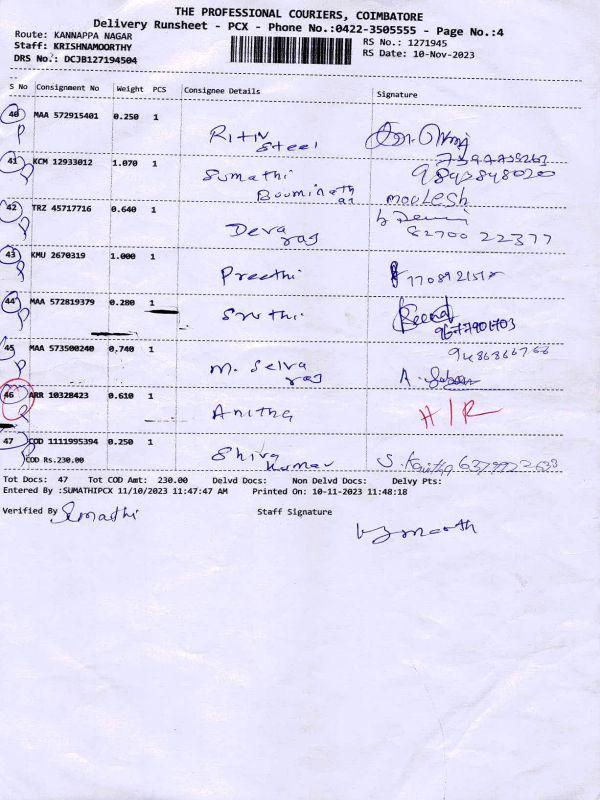 THE PROFESSIONAL COURIERS, COIMBATORE
Delivery Runsheet - PCX - Phone No.:0422-3505555 - Page No.:4
Route: KANNAPPA NAGAR
Staff: KRISHNAMOORTHY
DRS No.: DCJB127194504
RS No.: 1271945
RS Date: 10-Nov-2023
S No Consignment No Weight PCS Consignee Details Signature
40 MAA 572915401 0.250 1 Ritiv Steel
41 KCM 12933012 1.070 1 Sumathi Bouminath an 9842848020 moulesh
42 TRZ 45717716 0.640 1 Deva raj 82700 22377
43 KMU 2670319 1.000 1 Preethi
44 MAA 572819379 0.280 1 Sruthi 9677901703
45 MAA 573500240 0.740 1 M. Selva raj
46 ARR 10328423 0.610 1 Anitha H/R
47 COD 1111995394 0.250 1 Shiva Kumar
COD Rs.230.00
Tot Docs: 47 Tot COD Amt: 230.00 Delvd Docs: Non Delvd Docs: Delvy Pts:
Entered By :SUMATHIPCX 11/10/2023 11:47:47 AM Printed On: 10-11-2023 11:48:18
Verified By Sumathi Staff Signature